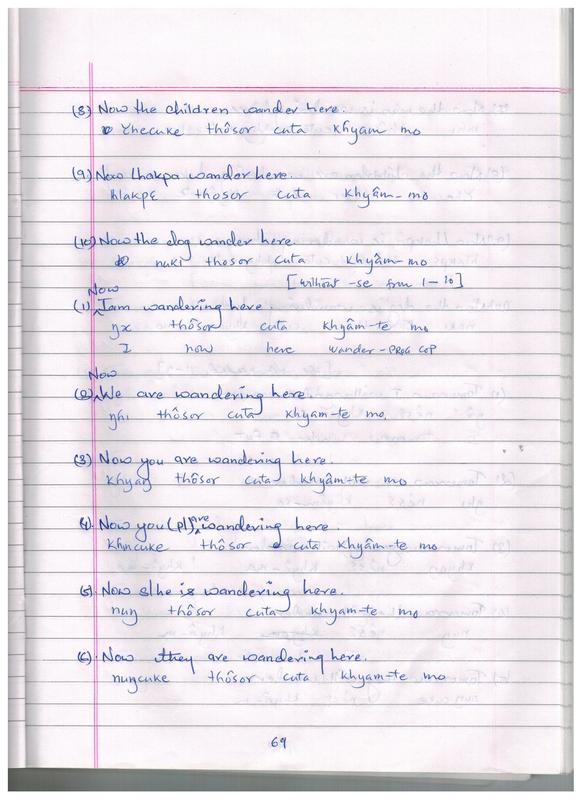 (8) Now the children wander here.
Yhecuke thôsor cuta khyâm mo
(9) Now Lhakpa wander here.
hlakpɛ thosor cuta khyâm-mo
(10) Now the dog wander here.
nuki thosor cuta khyâm-mo
[without -se from 1-10]
Now
(1) I am wandering here.
thôsor cuta khyâm-te mo
I now here wander-PROG COP
Now
(2) We are wandering here.
ŋhi thôsor cuta khyam-te mo.
(3) Now you are wandering here.
khyaŋ thôsor cuta khyâm-te mo
(4). Now you (pl) are wandering here.
khincuke thôsor cuta khyâm-te mo
(5). Now s/he is wandering here.
nuŋ thôsor cuta khyam-te mo
(6). Now they are wandering here.
nuŋcuke thôsor cuta khyam-te mo
69